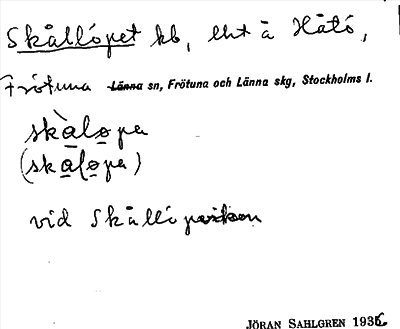 Skållópet kb, lht å Håtó,
Frötuna Länna sn, Frötuna och Länna skg, Stockholms l.
skàlopa
(skàlopa)
vid Skålló
JÖRAN SAHLGREN 1936